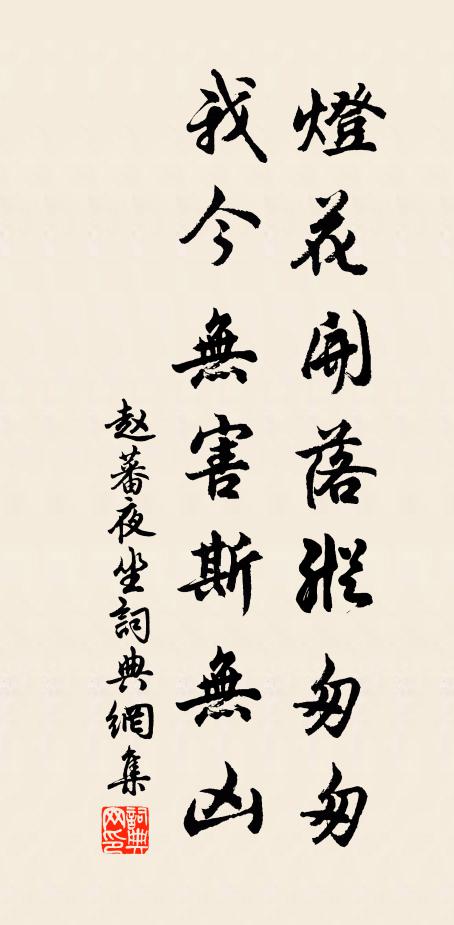 燈花開落縱匆匆
我今無害斯無凶
赵蕃夜坐詞典網集
詞典網印